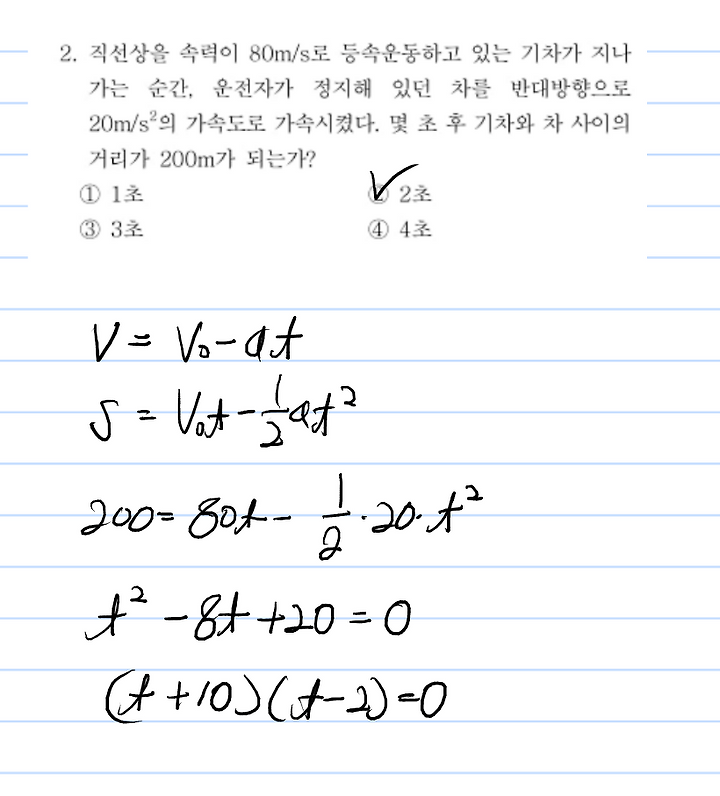 2. 직선상을 속력이 80m/s로 등속운동하고 있는 기차가 지나
가는 순간, 운전자가 정지해 있던 차를 반대방향으로
20m/s²의 가속도로 가속시켰다. 몇 초 후 기차와 차 사이의
거리가 200m가 되는가?
① 1초 ② 2초
③ 3초 ④ 4초
V = V₀ - at
S = V₀t - 1/2 at²
200 = 80t - 1/2 · 20 · t²
t² - 8t + 20 = 0
(t + 10)(t - 2) = 0